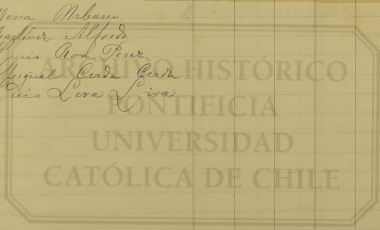 Urbano
Alfredo
Luis Roa Perez
Miguel Cerda Cerda
Luis Leiva Leiva
ARCHIVO HISTÓRICO
PONTIFICIA
UNIVERSIDAD
CATÓLICA DE CHILE